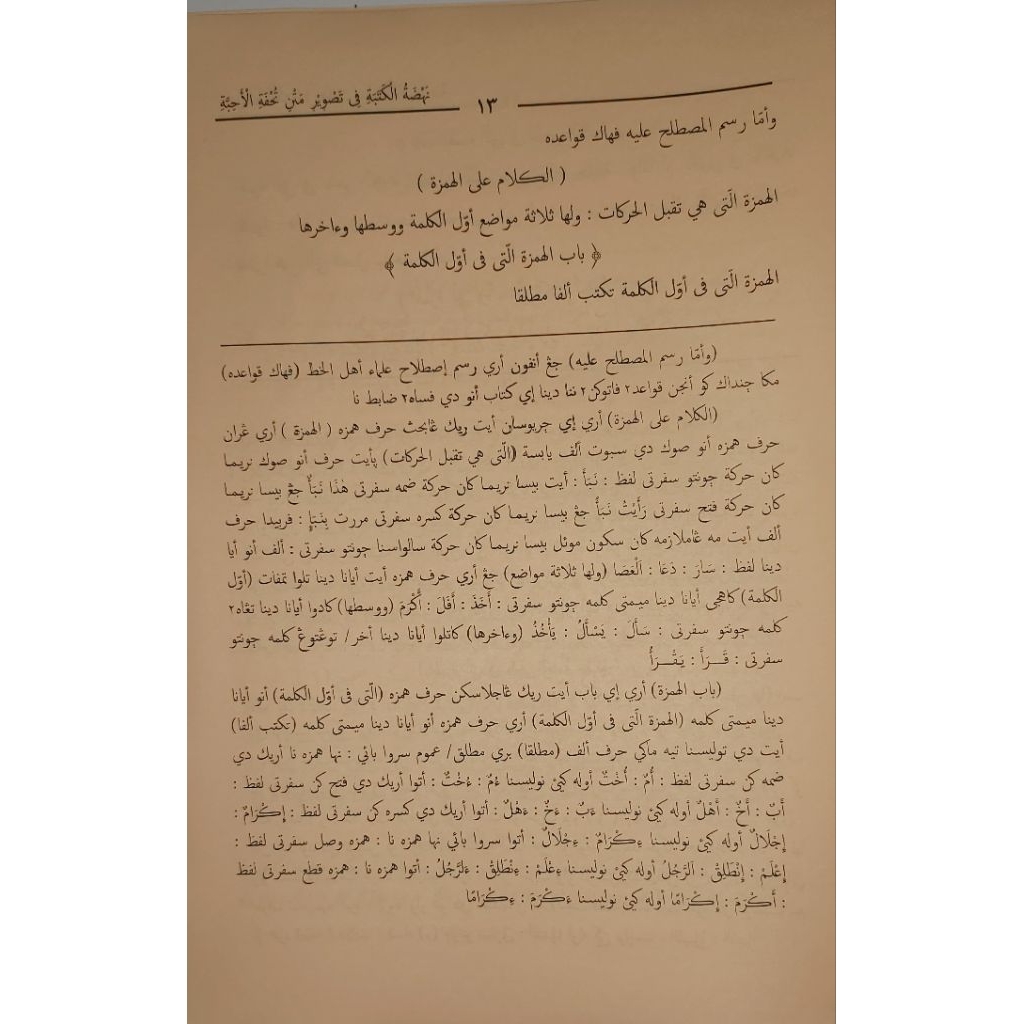 نَهْضَةُ الْكَتَبَةِ فِى تَصْوِيْرِ مَتْنِ تُحْفَةِ الْأَحِبَّةِ
١٣
وأمّا رسم المصطلح عليه فهاك قواعده
( الكلام على الهمزة )
الهمزة الّتى هي تقبل الحركات : ولها ثلاثة مواضع أوّل الكلمة ووسطها وءاخرها
﴿ باب الهمزة الّتى فى أوّل الكلمة ﴾
الهمزة الّتى فى أوّل الكلمة تكتب ألفا مطلقا
(وأمّا رسم المصطلح عليه) جڠ أنفون أري رسم إصطلاح علماء أهل الخط (فهاك قواعده)
مكا چنداك كو أنجن قواعد٢ فاتوكن٢ ننا دينا إي كتاب أنو دي فساه٢ ضابط نا
(الكلام على الهمزة) أري إي چريوسان أيت ريك ڠابحث حرف همزه ( الهمزة ) أري ڠران
حرف همزه أنو صوك دي سبوت ألف يابسة (الّتى هي تقبل الحركات) ڽأيت حرف أنو صوك نريما
كان حركة چونتو سفرتى لفظ : نَبَأَ : أيت بيسا نريما كان حركة ضمه سفرتى هٰذَا نَبَأٌ جڠ بيسا نريما
كان حركة فتح سفرتى رَأَيْتُ نَبَأً جڠ بيسا نريما كان حركة كسره سفرتى مررت بِنَبَإٍ : فربيدا حرف
ألف أيت مه ڠاملازمه كان سكون موئل بيسا نريما كان حركة سالواسنا چونتو سفرتى : ألف أنو أيا
دينا لفظ : سَارَ : دَعَا : اَلْعَصَا (ولها ثلاثة مواضع) جڠ أري حرف همزه أيت أيانا دينا تلوا تمفات (أوّل
الكلمة) كاهجى أيانا دينا ميمتى كلمه چونتو سفرتى : أَخَذَ : أَفَلَ : أَكْرَمَ (ووسطها) كادوا أيانا دينا تڠاه٢
كلمه چونتو سفرتى : سَأَلَ : يَسْأَلُ : يَأْخُذُ (وءاخرها) كاتلوا أيانا دينا أخر/ توڠتوڠ كلمه چونتو
سفرتى : قَــرَأَ : يَقْــرَأُ
(باب الهمزة) أري إي باب أيت ريك ڠاجلاسكن حرف همزه (الّتى فى أوّل الكلمة) أنو أيانا
دينا ميمتى كلمه (الهمزة الّتى فى أوّل الكلمة) أري حرف همزه أنو أيانا دينا ميمتى كلمه (تكتب ألفا)
أيت دي توليسنا تيه ماكي حرف ألف (مطلقا) بري مطلق/ عموم سروا بائي : نها همزه نا أريك دي
ضمه كن سفرتى لفظ : أُمٌ : أُخْتٌ أوله كيئ نوليسنا ءُمٌ : ءُخْتٌ : أتوا أريك دي فتح كن سفرتى لفظ :
أَبٌ : أَخٌ : أَهْلٌ أوله كيئ نوليسنا ءَبٌ : ءَخٌ : ءَهْلٌ : أتوا أريك دي كسره كن سفرتى لفظ : إِكْرَامٌ :
إِجْلَالٌ أوله كيئ نوليسنا ءِكْرَامٌ : ءِجْلَالٌ : أتوا سروا بائي نها همزه نا : همزه وصل سفرتى لفظ :
إِعْلَمْ : إِنْطَلِقْ : اَلرَّجُلُ أوله كيئ نوليسنا ءِعْلَمْ : ءِنْطَلِقْ : ءَلرَّجُلُ : أتوا همزه نا : همزه قطع سفرتى لفظ
: أَكْرَمَ : إِكْرَامًا أوله كيئ نوليسنا ءَكْرَمَ : ءِكْرَامًا